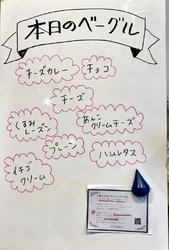 本日のベーグル
チーズカレー
チョコ
チーズ
くるみ
レーズン
あんこ
クリームチーズ
プレーン
ハムレタス
イチゴ
クリーム